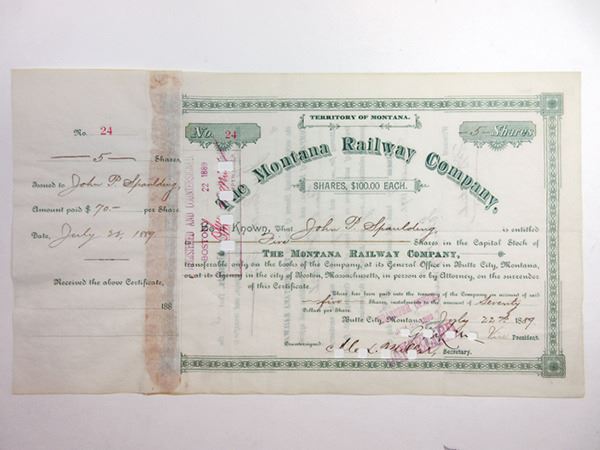 No. 24
5 Shares,
Issued to John P. Spaulding,
Amount paid $ 70- per Share
Date, July 22, 1889
Received the above Certificate,
188
TERRITORY OF MONTANA.
No. 24
5 Shares
The Montana Railway Company,
SHARES, $100.00 EACH.
REGISTERED AND COUNTERSIGNED
BOSTON 22 1889
Be it Known, That John P. Spaulding, is entitled
Five Shares in the Capital Stock of
THE MONTANA RAILWAY COMPANY,
transferable only on the books of the Company, at its General Office in Butte City, Montana,
or at its Agency in the city of Boston, Massachusetts, in person or by Attorney, on the surrender
of this Certificate.
There has been paid into the treasury of the Company on account of said
five Shares, instalments to the amount of Seventy
Dollars per Share.
Butte City, Montana July 22nd 1889
Vice President.
Countersigned
Secretary.